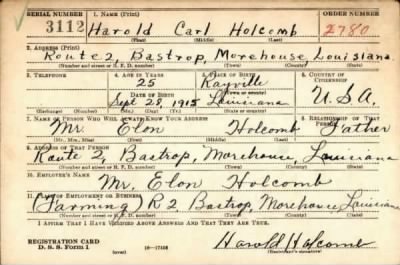 SERIAL NUMBER 1. NAME (Print) ORDER NUMBER
3112 Harold Carl Holcomb 2780
(First) (Middle) (Last)
2. ADDRESS (Print)
Route 2 Bastrop, Morehouse Louisiana
(Number and street or R. F. D. number) (Town) (County) (State)
3. TELEPHONE 4. AGE IN YEARS 5. PLACE OF BIRTH 6. COUNTRY OF CITIZENSHIP
25 Rayville
DATE OF BIRTH (Town or county)
Sept 28, 1915 Louisiana U.S.A.
(Exchange) (Number) (Mo.) (Day) (Yr.) (State or country)
7. NAME OF PERSON WHO WILL ALWAYS KNOW YOUR ADDRESS 8. RELATIONSHIP OF THAT PERSON
Mr. Elon Holcomb Father
(Mr., Mrs., Miss) (First) (Middle) (Last)
9. ADDRESS OF THAT PERSON
Route 2, Bastrop, Morehouse, Louisiana
(Number and street or R. F. D. number) (Town) (County) (State)
10. EMPLOYER'S NAME
Mr. Elon Holcomb
11. PLACE OF EMPLOYMENT OR BUSINESS
(Farming) R 2, Bastrop, Morehouse, Louisiana
(Number and street or R. F. D. number) (Town) (County) (State)
I AFFIRM THAT I HAVE VERIFIED ABOVE ANSWERS AND THAT THEY ARE TRUE.
REGISTRATION CARD
D. S. S. Form 1 (over) Harold Holcomb
(Registrant's signature)